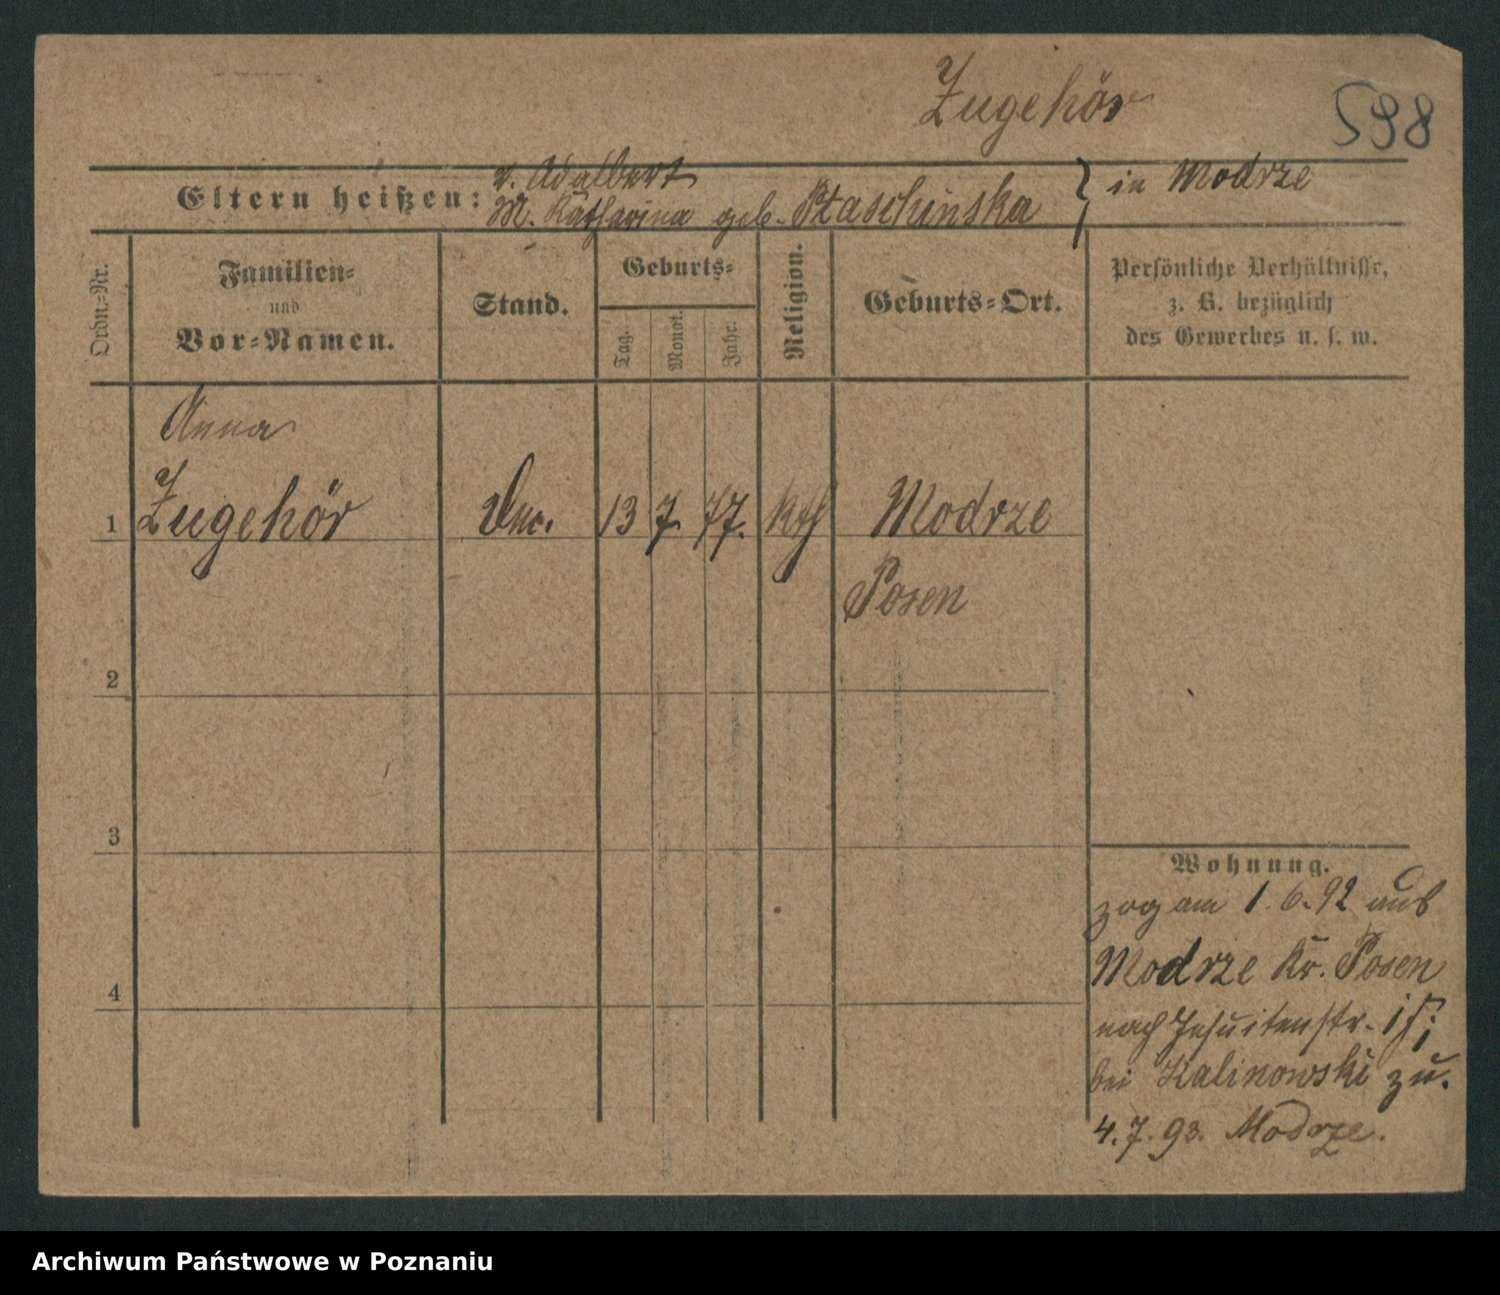 Zugehör
598
Eltern heißen:
v. Adalbert
M. Katharina geb. Ptaschinska
in Modrze
Ordn.-Nr.
Familien-
und
Vor-Namen.
Stand.
Geburts-
Tag.
Monat.
Jahr.
Religion.
Geburts-Ort.
Persönliche Verhältnisse,
z. B. bezüglich
des Gewerbes u. s. w.
Anna
1 Zugehör 13 7 77. kth Modrze
Posen
2
3
4
Wohnung.
zog am 1.6.92 aus
Modrze Kr. Posen
nach Jesuitenstr.
bei Kalinowski zu.
4.7.93. Modrze.
Archiwum Państwowe w Poznaniu